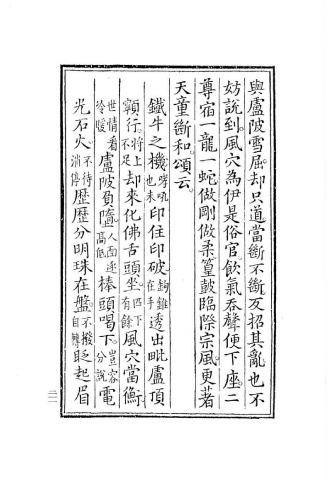 與盧陂雪屈却只道當斷不斷反招其亂也不
妨說到風穴為伊是俗官飲氣吞聲便下座二
尊宿一龍一蛇做剛做柔篂皷臨際宗風更著
天童斷和頌云
鐵牛之機哮吼也未印住印破鉤錐在手透出毗盧頂
𩕳行將上不足却來化佛舌頭坐四下有餘風穴當衡
世情看冷暖盧陂負墮人面逐高低棒頭喝下豈容分說電
光石火不待消停歷歷分明珠在盤不撥自轉眨起眉